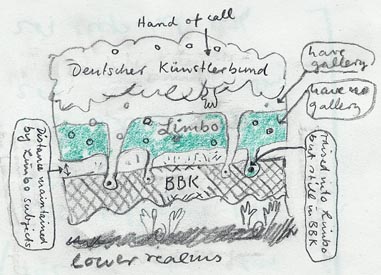 Hand of call
Deutscher Künstlerbund
have
gallery
have no
gallery
Limbo
Distance maintained
by Limbo subjects
BBK
raised into Limbo
but still in
BBK
Lower realms